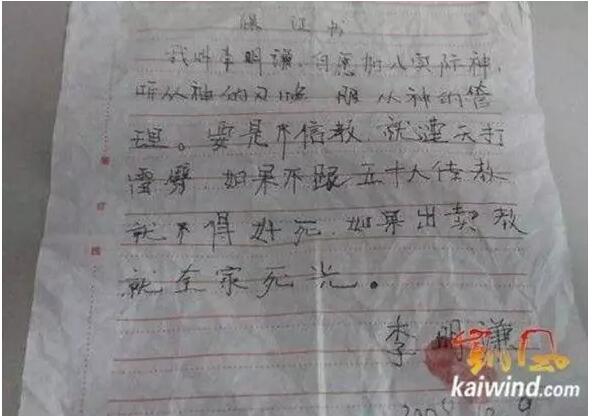 保证书
我叫李明谦,自愿加入实际神,
听从神的 服从神的管
理。要是不信教,就遭天打
雷劈.如果不跟五十人传教
就不得好死.如果出卖教
就全家死光。
李明谦
凯风
kaiwind.com